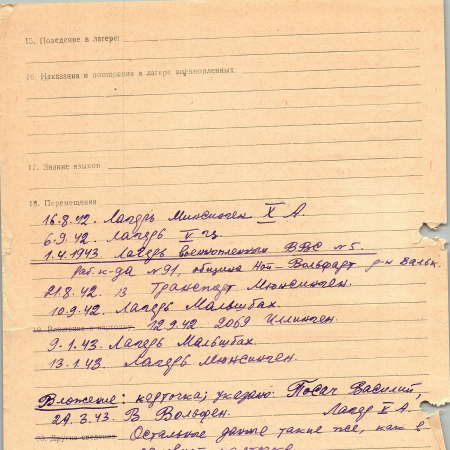 15. Поведение в лагере:
16. Наказания и поощрения в лагере военнопленных
17. Знание языков
18. Перемещения
16.8.42. Лагерь Мюнсинген X А.
6.9.42. Лагерь V
1.4.1943. Лагерь военнопленных ВВС №5.
Раб. к-да №91, община Ной-Вольфарт р-н
21.8.42. Транспорт Мюнсинген.
10.9.42. Лагерь Мальшбах.
12.9.42 2069 Иллинген.
9.1.43. Лагерь Мальшбах.
13.1.43. Лагерь Мюнсинген.
Вложение: карточка; указано: Посач Василий,
29.3.43. В Вольфен. Лагер X А.
20. Другие сведения Остальные данные такие же, как в